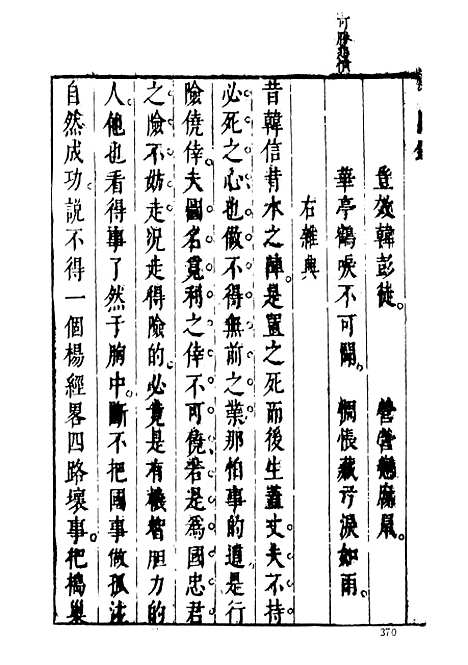 可勝慨憤
豈效韓彭徒。 營營戀腐鼠。
華亭鶴唳不可聞。 惆悵藏弓淚如雨。
右雜興
昔韓信背水之陣。是置之死而後生。蓋丈夫不持
必死之心。也做不得無前之業。那怕事的。還是行
險僥倖。夫圖名覓利之倖不可僥。若是爲國忠君
之險不妨走。况走得險的。必竟是有機智胆力的
人。他也看得事了然于胸中。斷不把國事做孤注
自然成功。說不得一個楊經畧四路壞事。把搗巢
370